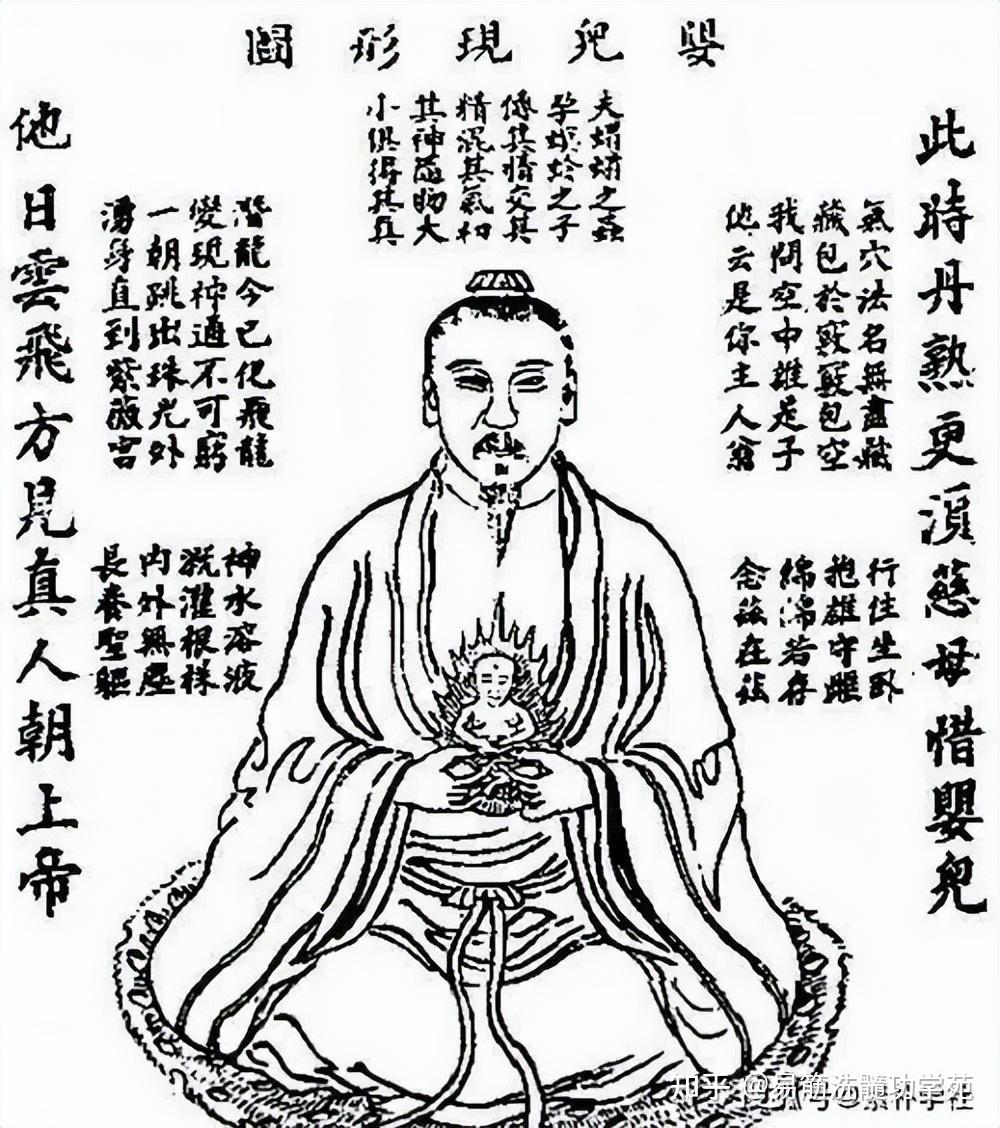 嬰兒現形圖
此時丹熟更須慈母惜嬰兒
夫蜾蠃之蟲
孕螟蛉之子
傳其情交其
精混其氣和
其神隨物大
小俱得其真
氣穴法名無盡藏
藏包於竅竅包空
我問空中誰是子
他云是你主人翁
行住坐臥
抱雄守雌
綿綿若存
念茲在茲
潛龍今已化飛龍
變現神通不可窮
一朝跳出珠光外
湧身直到紫薇宮
神水溶液
洗灌根株
內外無塵
長養聖軀
他日雲飛方見真人朝上帝
知乎 @易筋洗髓功学苑